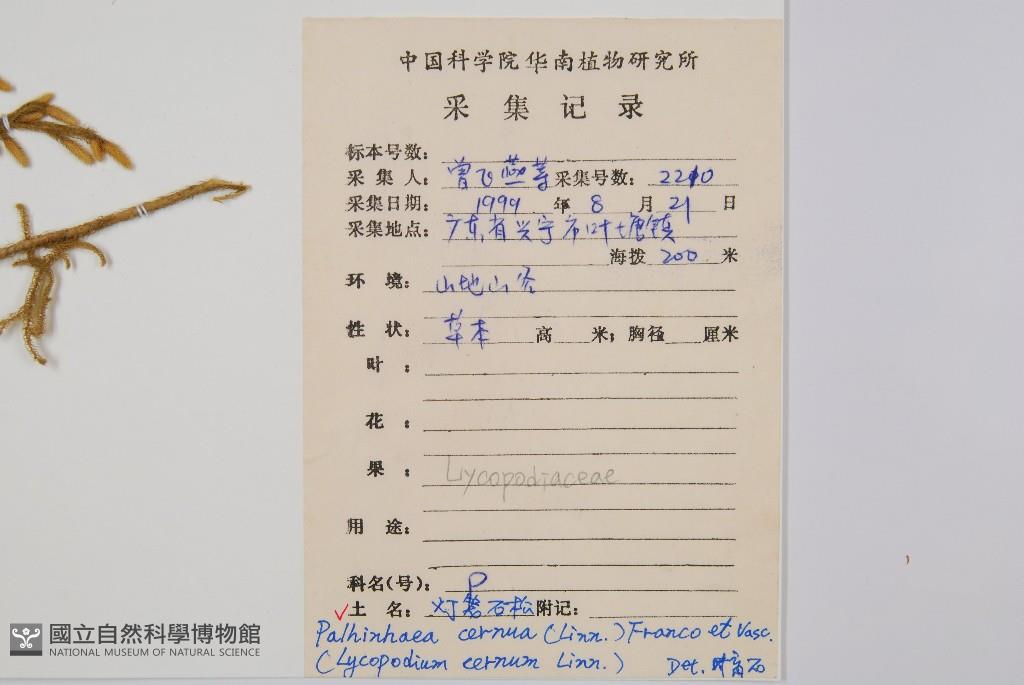 中国科学院华南植物研究所
采集记录
标本号数:
采集人: 曾飞燕等 采集号数: 2210
采集日期: 1999 年 8 月 21 日
采集地点: 广东省兴宁市叶塘镇
海拨 200 米
环境: 山地山谷
性状: 草本 高 米; 胸径 厘米
叶:
花:
果: Lycopodiaceae
用途:
科名(号): P
土名: 灯笼石松 附记:
Palhinhaea cernua (Linn.) Franco et Vasc.
(Lycopodium cernum Linn.) Det.
國立自然科學博物館
NATIONAL MUSEUM OF NATURAL SCIENCE